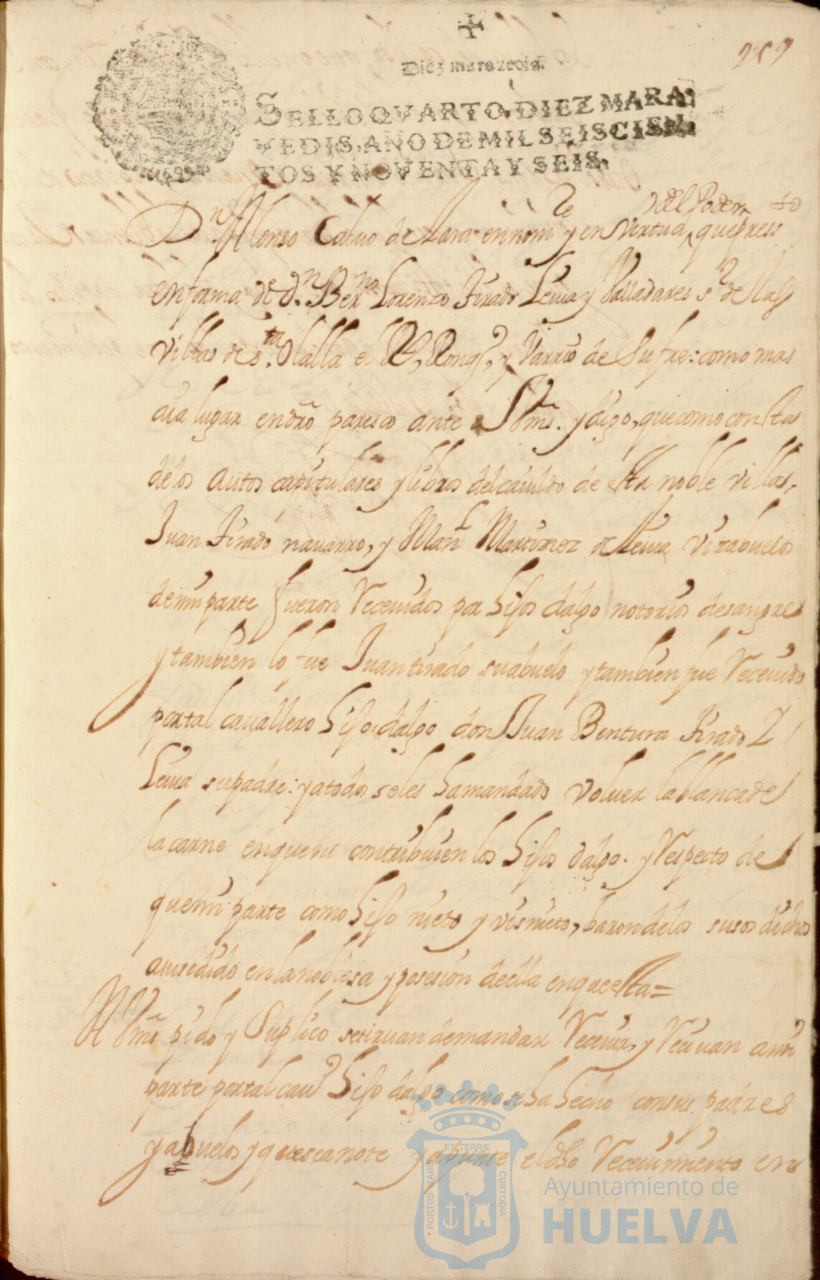 +
257
Diez marauedis.
SELLO QVARTO, DIEZ MARA-
VEDIS, AÑO DE MIL SEISCIEN-
TOS Y NOVENTA Y SEIS.
Dn Alonso Calvo de Lara en nomre y en virtud del Poder que presto
en forma de d.n Berno Lorenzo Tirado Leiua y Valladares s.r de las
Villas de s.ta Olalla el Rl, y Varrio de Sufre: como mas
aia lugar en dro paresco ante Vms. y digo, que como consta
de los autos capitulares y libros del cauildo de esta noble villa,
Juan Tirado nauarro, y Manl Martinez de Leiua Visabuelos
de mi parte fueron Receuidos por hijos dalgo notorios de sangre
y tambien lo fue Juan tirado su abuelo y tambien fue Receuido
por tal cauallero hijo dalgo don Juan Bentura Tirado Y
Leiua su padre: y a todos se les ha mandado voluer la blanca de
la carne en que no contribuien los hijos dalgo. y Respecto de
que mi parte como hijo nieto y visnieto, baron de los susodichos
a susedido en la noblesa y posesion de ella en que esta=
A Vms pido y Suplico se siruan de mandar Receuir, y Reciuan a mi
parte por tal cauro hijo dalgo como se ha hecho con sus padres
y abuelos y que se anote y apunte el dho Receuimiento en
PORTUS MARIS ET TERRÆ CUSTODIA
Ayuntamiento de
HUELVA